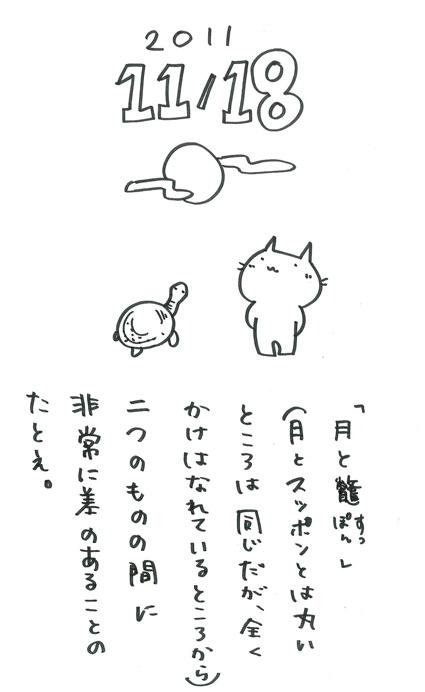 2011
11/18
「月と鼈」すっぽん
(月とスッポンとは丸い
ところは同じだが、全く
かけはなれているところから)
二つのものの間に
非常に差のあることの
たとえ。